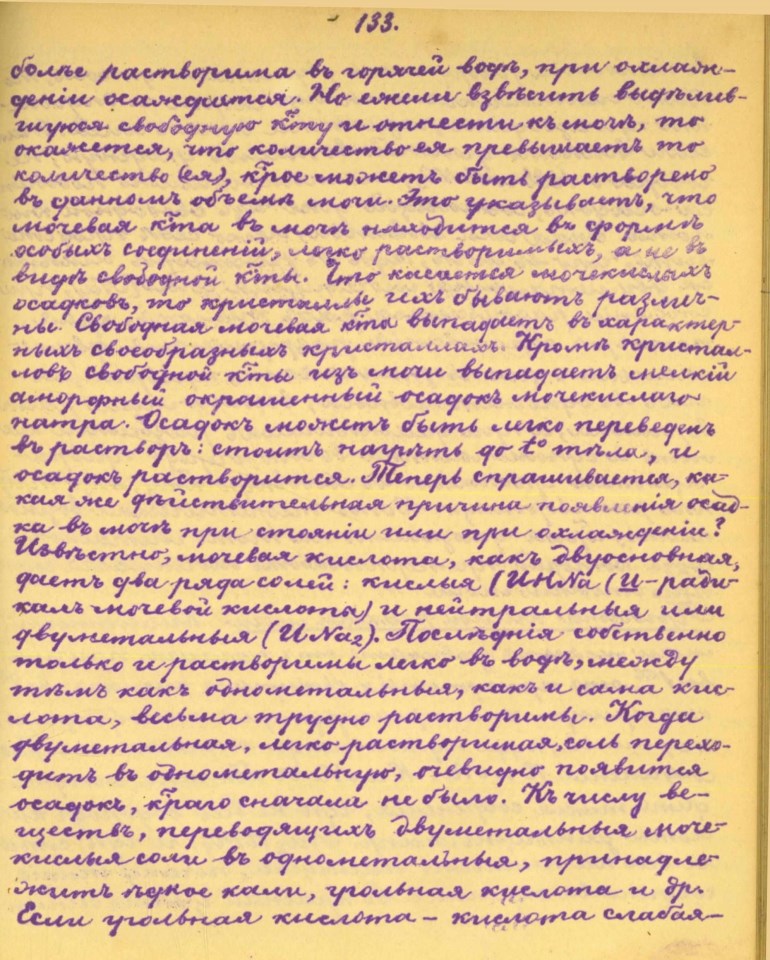 133.
болѣе растворима въ горячей водѣ, при охлаж-
деніи осаждается. Но ежели взвѣсить выдѣлив-
шуюся свободную к̅ту и отнести къ мочѣ, то
окажется, что количество ея превышаетъ то
количество (ея), к̅рое можетъ быть растворено
въ данномъ объемѣ мочи. Это указываетъ, что
мочевая к̅та въ мочѣ находится въ формѣ
особыхъ соединеній, легко растворимыхъ, а не въ
видѣ свободной к̅ты. Что касается мочекислыхъ
осадковъ, то кристаллы ихъ бываютъ различ-
ны. Свободная мочевая к̅та выпадаетъ въ характер-
ныхъ своеобразныхъ кристаллахъ. Кромѣ кристал-
ловъ свободной к̅ты изъ мочи выпадаетъ мелкій
аморфный окрашенный осадокъ мочекислаго
натра. Осадокъ можетъ быть легко переведенъ
въ растворъ: стоитъ нагрѣть до t° тѣла, и
осадокъ растворится. Теперь спрашивается, ка-
кая же дѣйствительная причина появленія осад-
ка въ мочѣ при стояніи или при охлажденіи?
Извѣстно, мочевая кислота, какъ двуосновная,
даетъ два ряда солей: кислыя (UHNa (U-ради-
калъ мочевой кислоты) и нейтральныя или
двуметальныя (UNa₂). Послѣднія собственно
только и растворимы легко въ водѣ, между
тѣмъ какъ однометальныя, какъ и сама кис-
лота, весьма трудно растворимы. Когда
двуметальная, легко растворимая, соль перехо-
дитъ въ однометальную, очевидно появится
осадокъ, к̅раго сначала не было. Къ числу ве-
ществъ, переводящихъ двуметальныя моче-
кислыя соли въ однометальныя, принадле-
житъ ѣдкое кали, угольная кислота и др.
Если угольная кислота – кислота слабая –